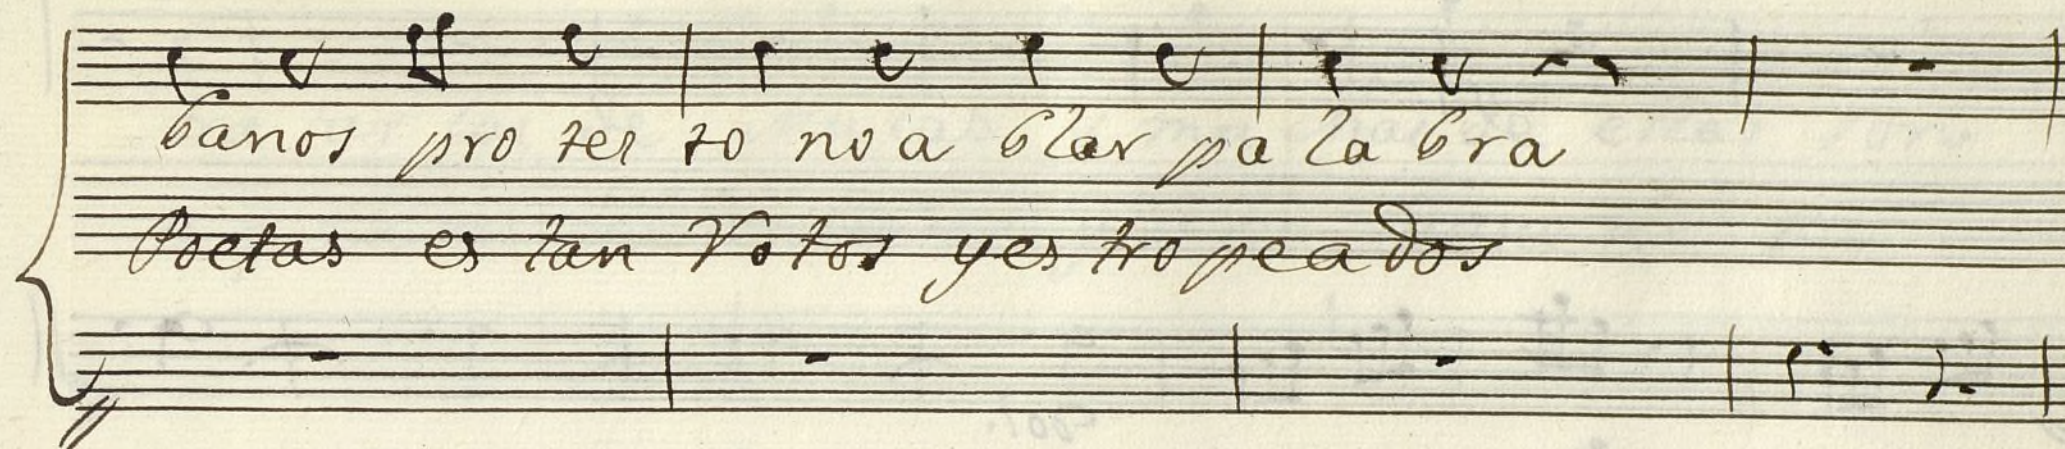 banos pro tes to no a blar pa la bra
Poetas es tan Votos y es tro pea dos